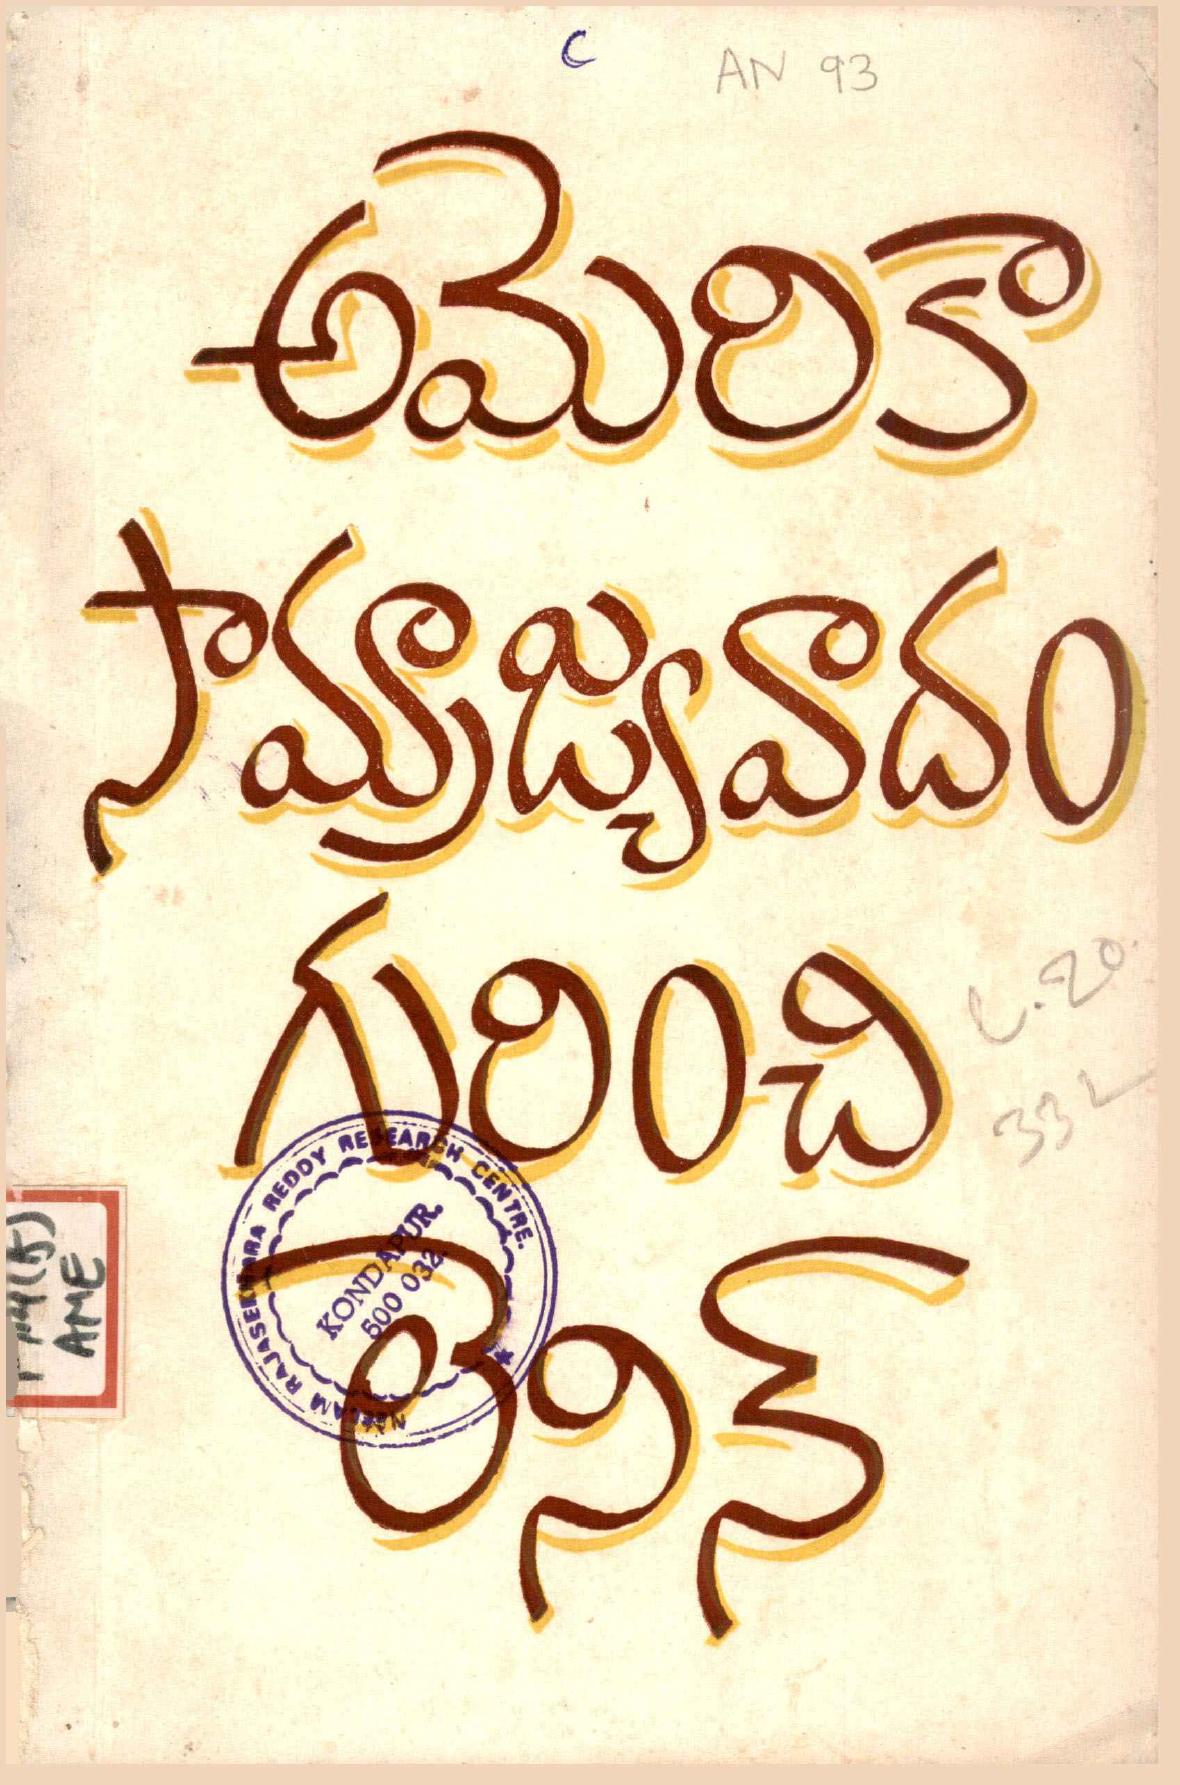 C
AN 93
అమెరికా
సామ్రాజ్యవాదం
గురించి
L.20.
332
NEELAM RAJASEKHARA REDDY RESEARCH CENTRE.
KONDAPUR.
500 032.
AME
లెనిన్